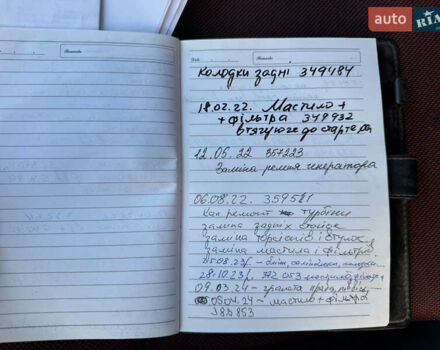 auto RIA
Колодки задні 349484
18.02.22. Мастило +
+ фільтра 349932
втягуюче до стартера
12.05.22 357223
Заміна ремня генератора
06.08.22. 359521
Кап ремонт турбіни
заміна задніх
заміна і втулок
заміна мастила і фільтрів
28.10.23/- 372 053
09.03.24 - граната права,
05.04.24 - мастило + фільтра
388 853